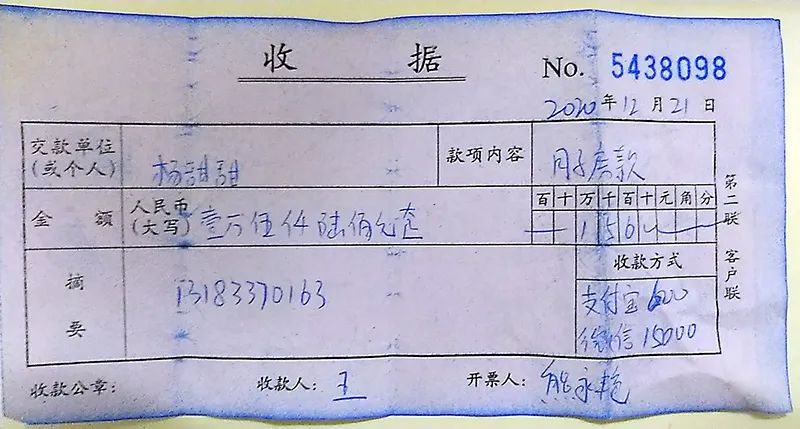 收据
No. 5438098
2020年12月21日
交款单位
(或个人)
杨甜甜
款项内容
月子房款
金额
人民币
(大写)
壹万伍仟陆佰元整
百十万千百十元角分
1 5 6
摘要
13183370163
收款方式
支付宝 600
微信 15000
收款公章：
收款人： 王
开票人： 熊永艳
第二联 客户联